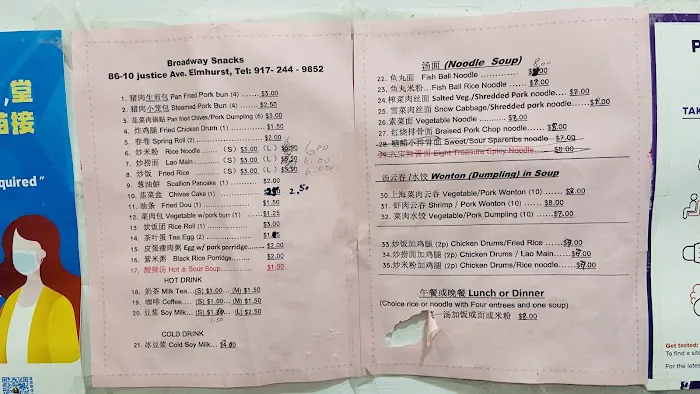 Broadway Snacks
86-10 justice Ave. Elmhurst, Tel: 917- 244 - 9852
1. 猪肉生煎包 Pan Fried Pork bun (4) ...... $3.00
2. 猪肉小笼包 Steamed Pork Bun (4) ....... $2.50
3. 韭菜肉锅贴 Pan fried Chives/Pork Dumpling (6) $3.00
4. 炸鸡腿 Fried Chicken Drum (1) ........ $1.50
5. 春卷 Spring Roll (2) ........ $2.00
6. 炒米粉 Rice Noodle ... (S) $3.00 (L) 6.00
7. 炒捞面 Lao Main ... (S) $3.00 (L) 6.00
8. 炒饭 Fried Rice ... (S) $3.00 (L) 6.00
9. 葱油餅 Scallion Pancake (1) $2.00
10. 韮菜盒 Chives Cake (1) 2.50
11. 油条 Fried Dou (1) ........ $1.50
12. 菜肉包 Vegetable w/pork bun (1) ...... $1.25
13. 炊饭团 Rice Roll (1) ....... $3.00
14. 茶叶蛋 Tea Egg (2)
15. 皮蛋瘦肉粥 Egg w/ pork porridge ....... $2.00
16. 紫米粥 Black Rice Porridge ....... $2.00
17. 酸辣汤 Hot & Sour Soup ........ $1.50
HOT DRINK
18. 奶茶 Milk Tea...(S) $1.00... (M) $1.50
19. 咖啡 Coffee....(S) $1.00... (M) $1.50
20. 豆浆 Soy Milk...(S) 1.50 (L) $2.50
COLD DRINK
21. 冰豆浆 Cold Soy Milk...
汤面 (Noodle Soup)
22. 鱼丸面 Fish Ball Noodle ............. 8.00
23. 鱼丸米粉...Fish Ball Rice Noodle ........ $8.00
24. 榨菜肉丝面 Salted Veg./Shredded Pork noodle..... $8.00
25. 雪菜肉丝面 Snow Cabbage/Shredded pork noodle...... $8.00
26. 素菜面 Vegetable Noodle ......... $8.00
27. 红烧排骨面 Braised Pork Chop noodle....... $8.00
28. 糖醋小排骨面 Sweet/Sour Spareribs noodle $7.00
29. 八宝辣酱面 Eight Treasure Spicy Noodle... $8.00
汤云吞/水饺 Wonton (Dumpling) in Soup
30. 上海菜肉云吞 Vegetable/Pork Wonton (10) ...... $8.00
31. 虾肉云吞 Shrimp / Pork Wonton (10) ...... $8.00
32. 菜肉水饺 Vegetable/Pork Dumpling (10) ....... $8.00
33. 炒饭加鸡腿 (2p) Chicken Drums/Fried Rice ..... $8.00
34. 炒捞面加鸡腿 (2p) Chicken Drums / Lao Main..... $8.00
35. 炒米粉加鸡腿 (2p) Chicken Drums/Rice noodle..... $8.00
午餐或晚餐 Lunch or Dinner
(Choice rice or noodle with Four entrees and one soup)
一汤加饭或面或米粉 $8.00
堂
接
quired"
P
TAK
Get tested:
To find a site
For the lates